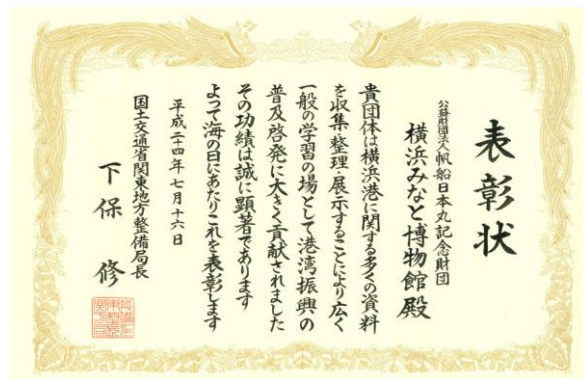 表彰状
公益財団法人帆船日本丸記念財団
横浜みなと博物館殿
貴団体は横浜港に関する多くの資料
を収集整理・展示することにより広く
一般の学習の場として港湾振興の
普及啓発に大きく貢献されました
その功績は誠に顕著であります
よって海の日にあたりこれを表彰します
平成二十四年七月十六日
国土交通省関東地方整備局長
下保修